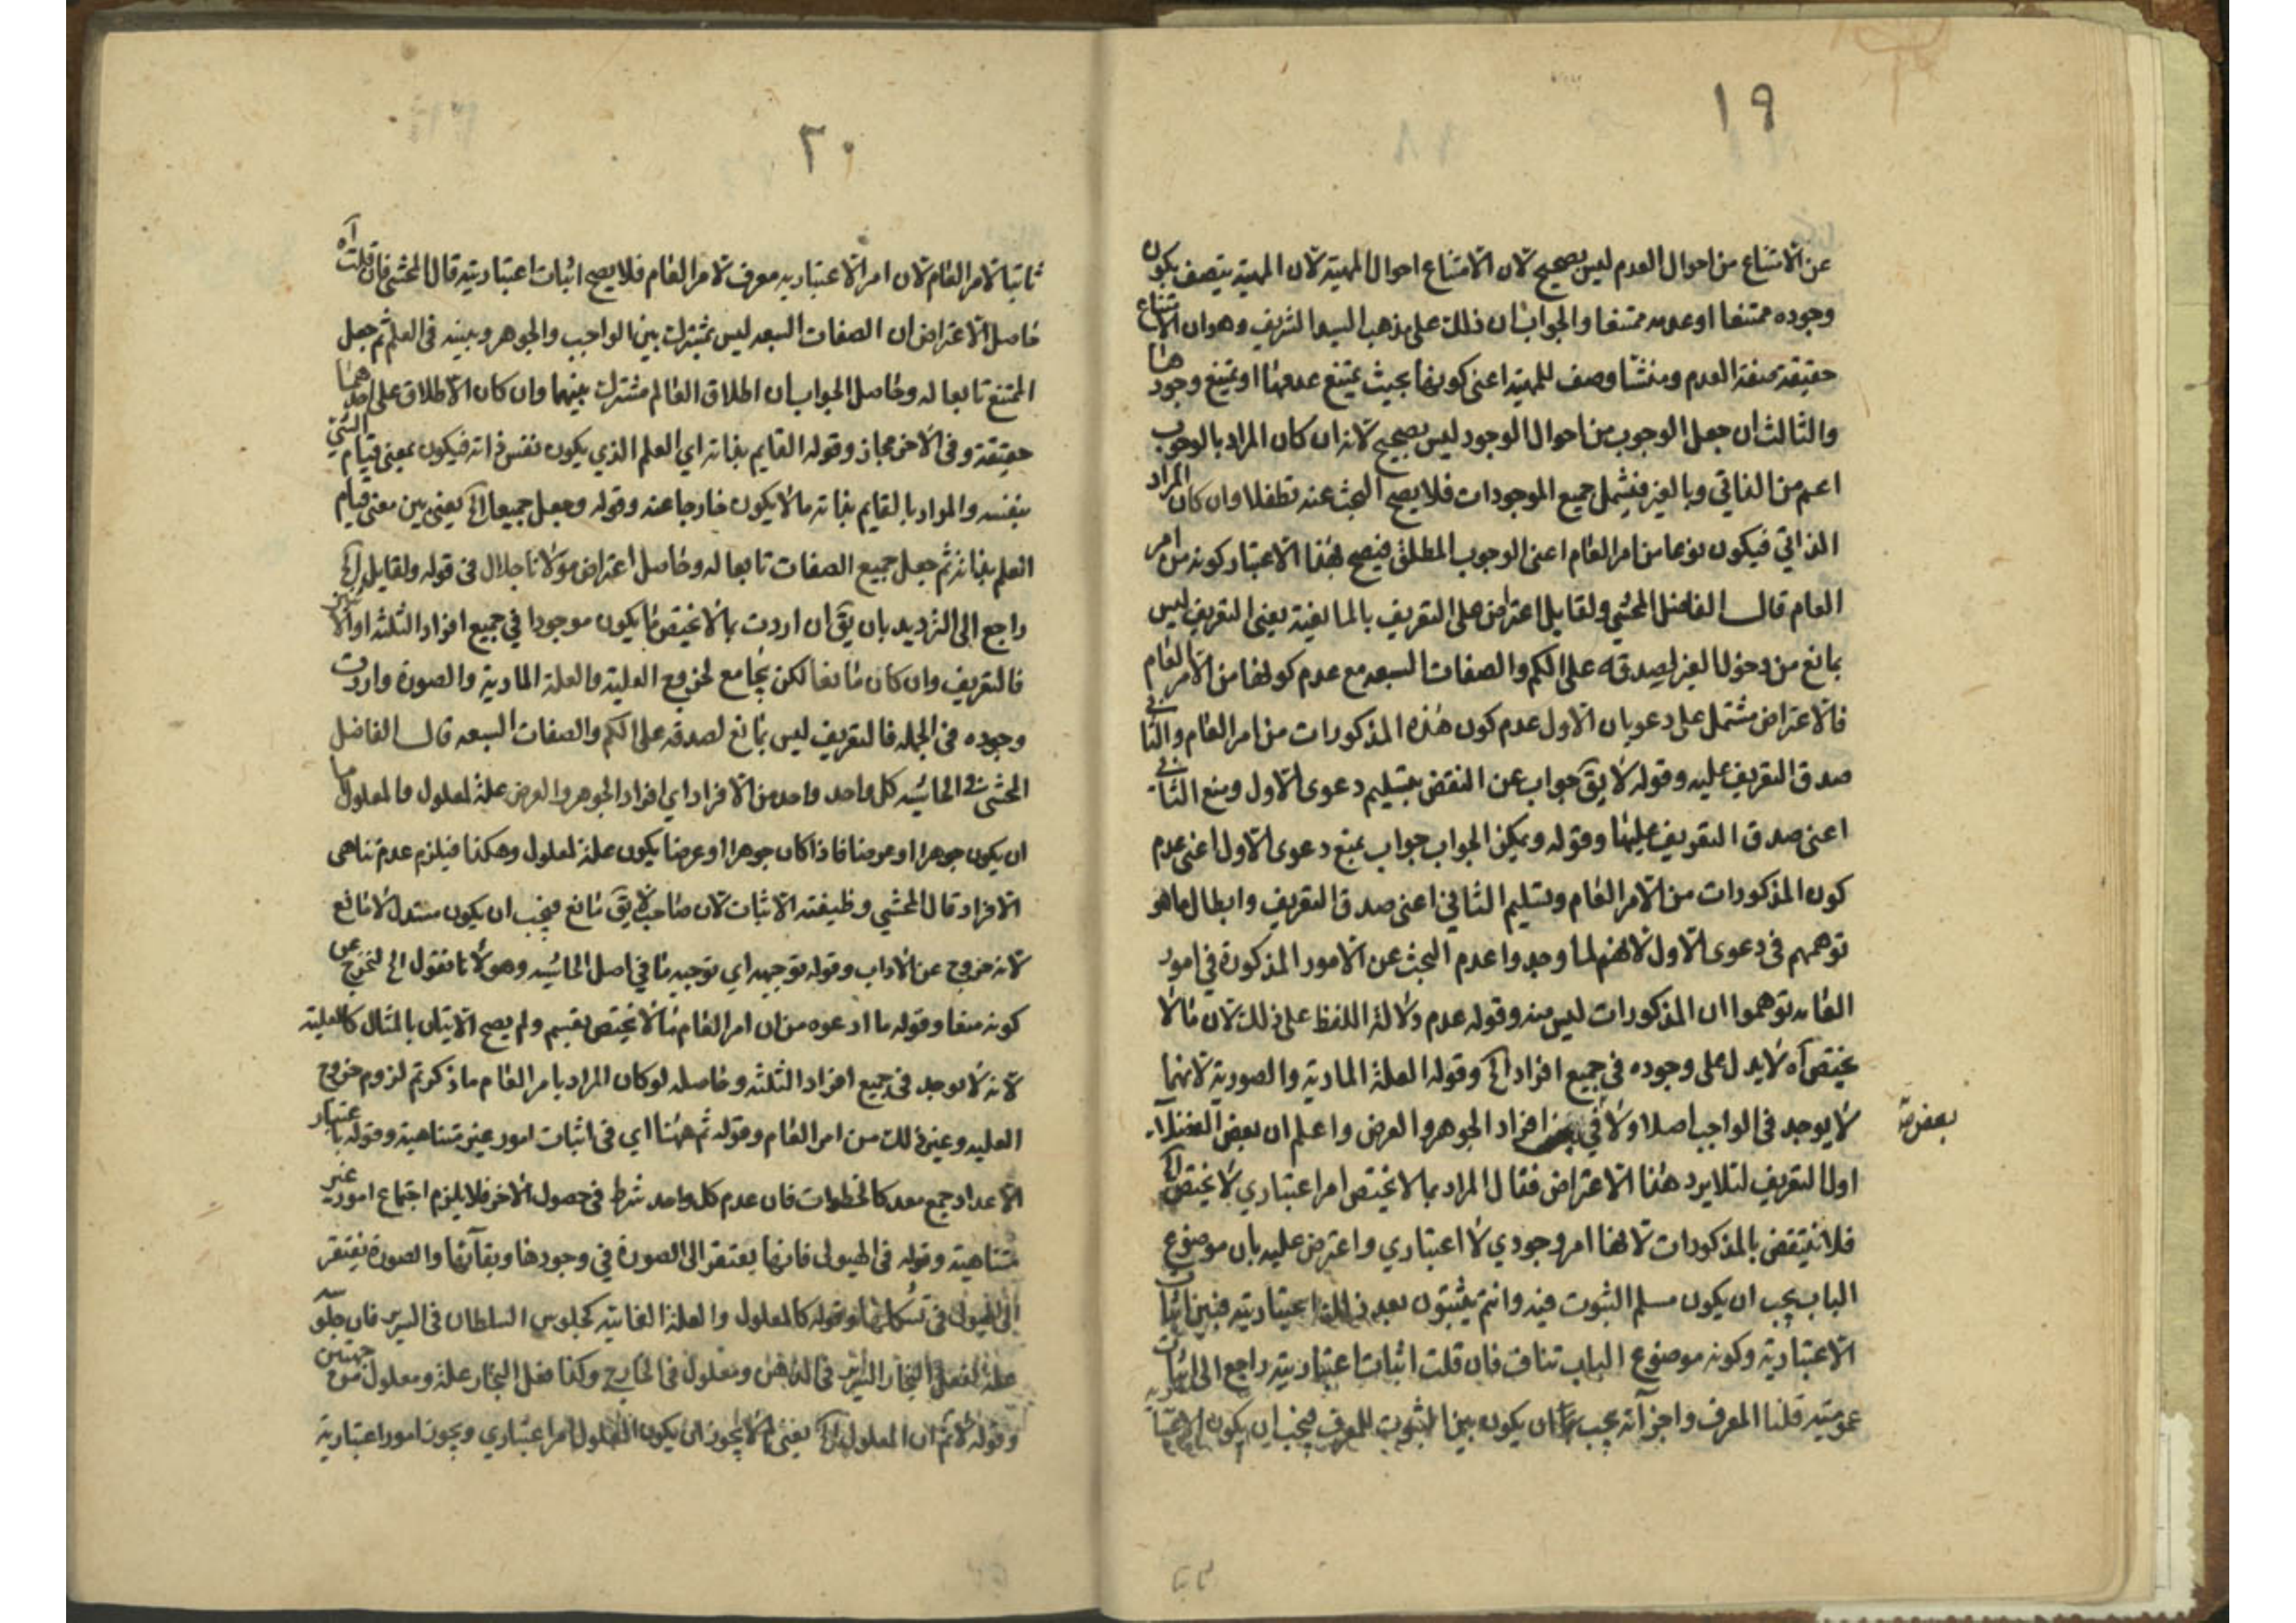 ١٩
عن الامتناع من احوال العدم ليس بصحيح لان الامتناع احوال المهية لان المهية يتصف بكون
وجوده ممتنعا او عدمه ممتنعا والجواب ان ذلك على مذهب السيد الشريف وهو ان الامتناع
حقيقة صفة العدم ومنشأ وصف للمهية اعنى كونها بحيث يمتنع عدمها او يمتنع وجودها
والثالث ان جعل الوجوب من احوال الوجود ليس بصحيح لانه ان كان المراد بالوجوب
اعم من الذاتي وبالغير فيشمل جميع الموجودات فلا يصح البحث عنه تطفلا وان كان المراد
الذاتي فيكون نوعا من امر العام اعنى الوجوب المطلق فيصح بهذا الاعتبار كونه من امر
العام قال الفاضل المحشي ولقايل اعتراض على التعريف بالمانعية يعنى التعريف ليس
بمانع من دخول الغير لصدقه على الكم والصفات السبعه مع عدم كونها من الامر العام
فالاعتراض مشتمل على دعويان الاول عدم كون هذه المذكورات من امر العام والثانى
صدق التعريف عليه وقوله لا يق جواب عن النقض بتسليم دعوى الاول ومنع الثانى
اعنى صدق التعريف عليها وقوله ويمكن الجواب جواب بمنع دعوى الاول اعنى عدم
كون المذكورات من الامر العام وتسليم الثاني اعنى صدق التعريف وابطال ما هو
توهمهم فى دعوى الاول لانهم لما وجدوا عدم البحث عن الامور المذكورة في امور
العامه توهموا ان المذكورات ليس منه وقوله عدم دلالة اللفظ على ذلك لان ما لا
يختص آه لا يدل على وجوده في جميع افراد الخ وقوله العلة المادية والصورية لانهما
لا يوجد فى الواجب اصلا ولا في افراد الجوهر والعرض واعلم ان بعض الفضلاء
بعض صح
اول التعريف لئلا يرد هذا الاعتراض فقال المراد بما لا يختص امر اعتباري لا يختص الخ
فلا ينتقض بالمذكورات لانها امر وجودي لا اعتباري واعترض عليه بان موضوع
الباب يجب ان يكون مسلم الثبوت فيه وانتم يثبتون بعد اعتباريته فبين اثبات
الاعتبارية وكونه موضوع الباب تناف فان قلت اثبات اعتباريته راجع الى اثبات
عموميته قلنا المعرف واجزآئه يجب ان يكون بين الثبوت للمعرف فيجب ان يكون
٢٠
ثابتا لامر العام لان امر الاعتباريه معرف لامر العام فلا يصح اثبات اعتباريته قال المحشى فان قلت آه
حاصل الاعتراض ان الصفات السبعه ليس بمشترك بين الواجب والجوهر وبينه فى العلم ثم جعل
الممتنع تابعا له وحاصل الجواب ان اطلاق العالم مشترك بينهما وان كان الاطلاق على احدهما
حقيقة وفى الاخر مجاز وقوله القايم بذاته اي العلم الذي يكون نفس ذاته فيكون بمعنى قيام الشئ
بنفسه والمراد بالقايم بذاته ما لا يكون خارجا عنه وقوله وجعل جميعها الخ يعنى بين معنى قيام
العلم بذاته ثم جعل جميع الصفات تابعا له وحاصل اعتراض مولانا جلال فى قوله ولقايل الخ
راجع الى الترديد بان يق ان اردت بما لا يختص ما يكون موجودا في جميع افراد الثلثه او الاثنين
فالتعريف وان كان مانعا لكن بجامع لخروج العلية والعلة المادية والصورة واردت
وجوده فى الجمله فالتعريف ليس بمانع لصدقه على الكم والصفات السبعه قال الفاضل
المحشى فى الحاشيه كل واحد واحد من الافراد اي افراد الجوهر والعرض علة لمعلول فالمعلول اما
ان يكون جوهرا او عرضا فاذا كان جوهرا او عرضا يكون علة لمعلول وهكذا فيلزم عدم تناهى
الافراد قال المحشي وظيفته الاثبات لان صاحب لا يق مانع فيجب ان يكون مستدلا لا مانع
لانه خروج عن الاداب وقوله توجيهه اي توجيه ما في اصل الحاشيه وهو لانا نقول الخ لتخرج عن
كونه منعا وقوله ما ادعوه من ان امر العام ما لا يختص بقسم ولم يصح الاتيان بالمثال كالعلية
لانه لا يوجد فى جميع افراد الثلثه وحاصله لو كان المراد بامر العام ما ذكرتم لزوم خروج
العليه وغير ذلك من امر العام وقوله ثم ههنا اي فى اثبات امور غير متناهية وقوله باعتبار
الاعداد جمع معد كالخطوات فان عدم كل واحد شرط فى حصول الاخر فلا يلزم اجتماع امور غير
متناهية وقوله فى الهيولى فانها يفتقر الى الصورة في وجودها وبقآئها والصورة يفتقر
الى الهيولى فى تشكلها وقوله كالمعلول والعلة الغائيه كجلوس السلطان فى السرير فان جلوسه
علة لفعل النجار السرير فى الذهن ومعلول فى الخارج وكذا فعل النجار علة ومعلول من جهتين
وقوله لا تم ان المعلول الخ يعنى لم لا يجوز ان يكون المعلول امر اعتباري ويجوز امور اعتبارية